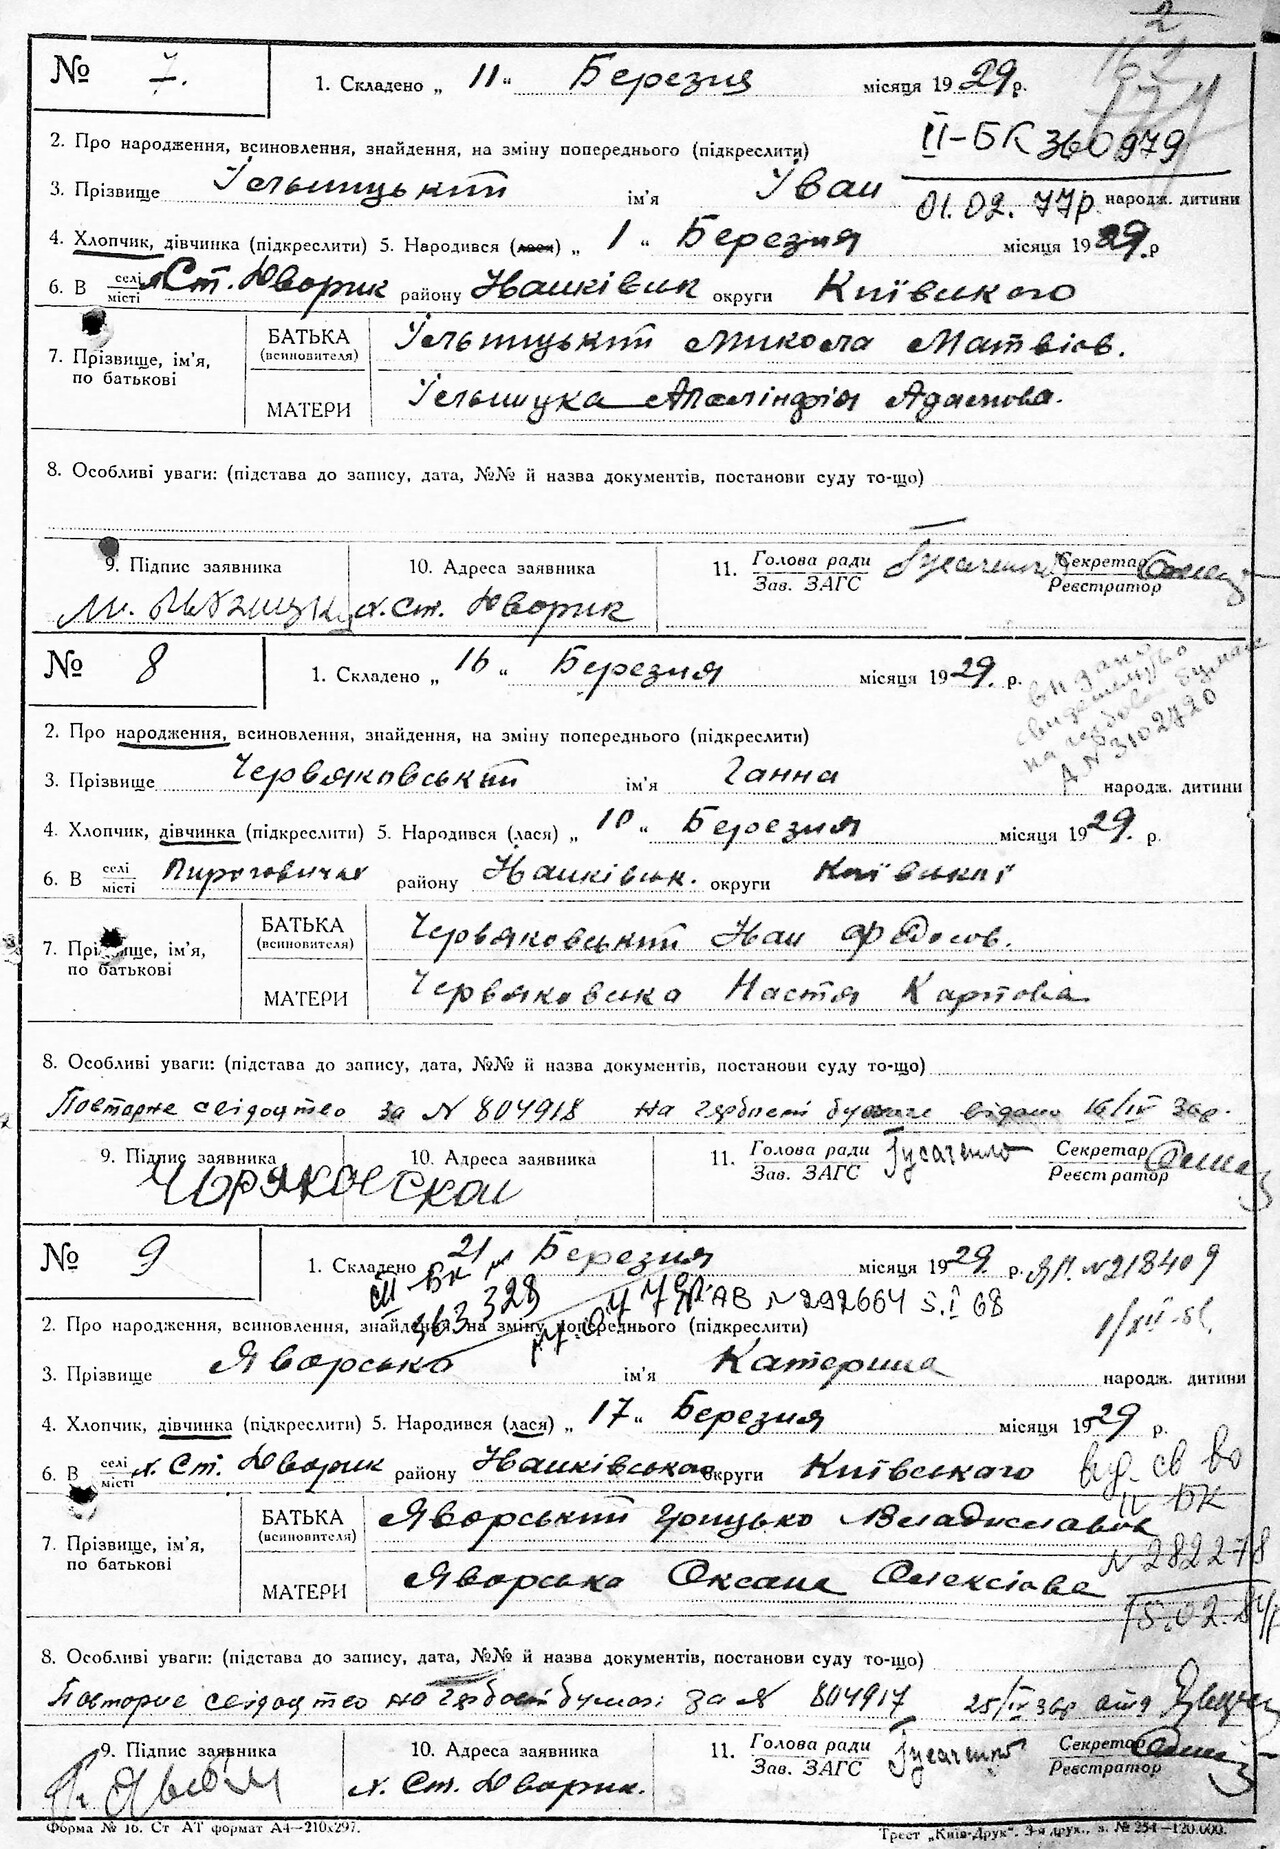 2
№ 7. 1. Складено „ 11 “ Березня місяця 1929 р.
2. Про народження, всиновлення, знайдення, на зміну попереднього (підкреслити)
ІІ-БК 360979
3. Прізвище Ільницький ім'я Іван народж. дитини
01.02.77р.
4. Хлопчик, дівчинка (підкреслити) 5. Народився (лася) „ 1 “ Березня місяця 1929. р
6. В селі місті х. Ст. Дворик району округи Київського
7. Прізвище, ім'я, по батькові
БАТЬКА (всиновителя) Ільницький Микола Матвієв.
МАТЕРИ Ільницка Адамова.
8. Особливі уваги: (підстава до запису, дата, №№ й назва документів, постанови суду то-що)
9. Підпис заявника 10. Адреса заявника 11. Голова ради Зав. ЗАГС Гусаченко Секретар Реєстратор
х. Ст. Дворик
№ 8 1. Складено „ 16 “ Березня місяця 1929. р.
видано
на
А N 3102720
2. Про народження, всиновлення, знайдення, на зміну попереднього (підкреслити)
3. Прізвище Червяковський ім'я Ганна народж. дитини
4. Хлопчик, дівчинка (підкреслити) 5. Народився (лася) „ 10 “ Березня місяця 1929. р.
6. В селі місті Пироговичах району округи Київської
7. Прізвище, ім'я, по батькові
БАТЬКА (всиновителя) Червяковський Іван Федосов.
МАТЕРИ Червяковська Настя Карпова
8. Особливі уваги: (підстава до запису, дата, №№ й назва документів, постанови суду то-що)
Повторне свідоцтво за N 804918 на гербовій бумазі видано 16/IV 36р.
9. Підпис заявника 10. Адреса заявника 11. Голова ради Зав. ЗАГС Гусаченко Секретар Реєстратор
№ 9 1. Складено „ 21 “ Березня місяця 1929. р. ЯП. N 218409
ІІІ БК 463329 АВ N 292664 5.I 68
2. Про народження, всиновлення, знайдення, на зміну попереднього (підкреслити)
3. Прізвище Яворська ім'я Катерина народж. дитини
4. Хлопчик, дівчинка (підкреслити) 5. Народився (лася) „ 17 “ Березня місяця 1929 р.
6. В селі місті х. Ст. Дворик району округи Київського
вид. св во
ІІ БК
N 282278
15.02.
7. Прізвище, ім'я, по батькові
БАТЬКА (всиновителя) Яворський Грицько Владиславов
МАТЕРИ Яворська Оксана Олексіова
8. Особливі уваги: (підстава до запису, дата, №№ й назва документів, постанови суду то-що)
Повторне свідоцтво на гербовій бумазі за N 804917 25/IV 36р
9. Підпис заявника 10. Адреса заявника 11. Голова ради Зав. ЗАГС Гусаченко Секретар Реєстратор
х. Ст. Дворик.
Форма № 16. Ст АТ формат А4—210х297.
Трест „Київ-Друк“. 3-я друк., з. № 254—120.000.